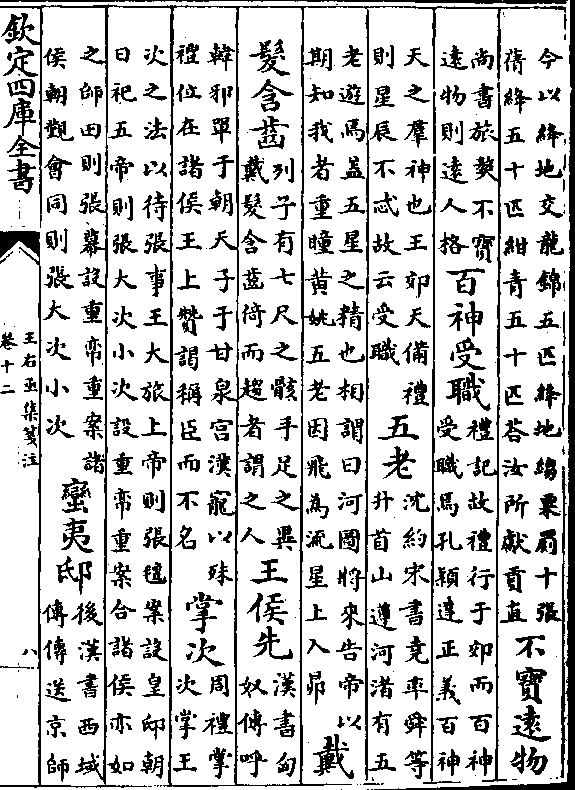 今以絳地交龍錦五匹絳地縐粟罽十張
蒨絳五十匹紺青五十匹答汝所獻貢直
不寳逺物
尚書旅獒不寳
逺物則逺人格
百神受職
禮記故禮行于郊而百神
受職焉孔穎達正義百神
天之羣神也王郊天備禮
則星辰不忒故云受職
五老
沈約宋書堯率舜等
升首山遵河渚有五
老遊焉葢五星之精也相謂曰河圖將來告帝以
期知我者重瞳黄姚五老因飛為流星上入昴
戴
髪含齒
列子有七尺之骸手足之異
戴髮含齒倚而趨者謂之人
王侯先
漢書匈
奴傳呼
韓邪單于朝天子于甘泉宮漢寵以殊
禮位在諸侯王上贊謁稱臣而不名
掌次
周禮掌
次掌王
次之法以待張事王大旅上帝則張氊案設皇邸朝
日祀五帝則張大次小次設重帟重案合諸侯亦如
之師田則張幕設重帟重案諸
侯朝覲會同則張大次小次
蠻夷邸
後漢書西域
傳傳送京師
欽定四庫全書
王右丞集箋注
卷十二
八